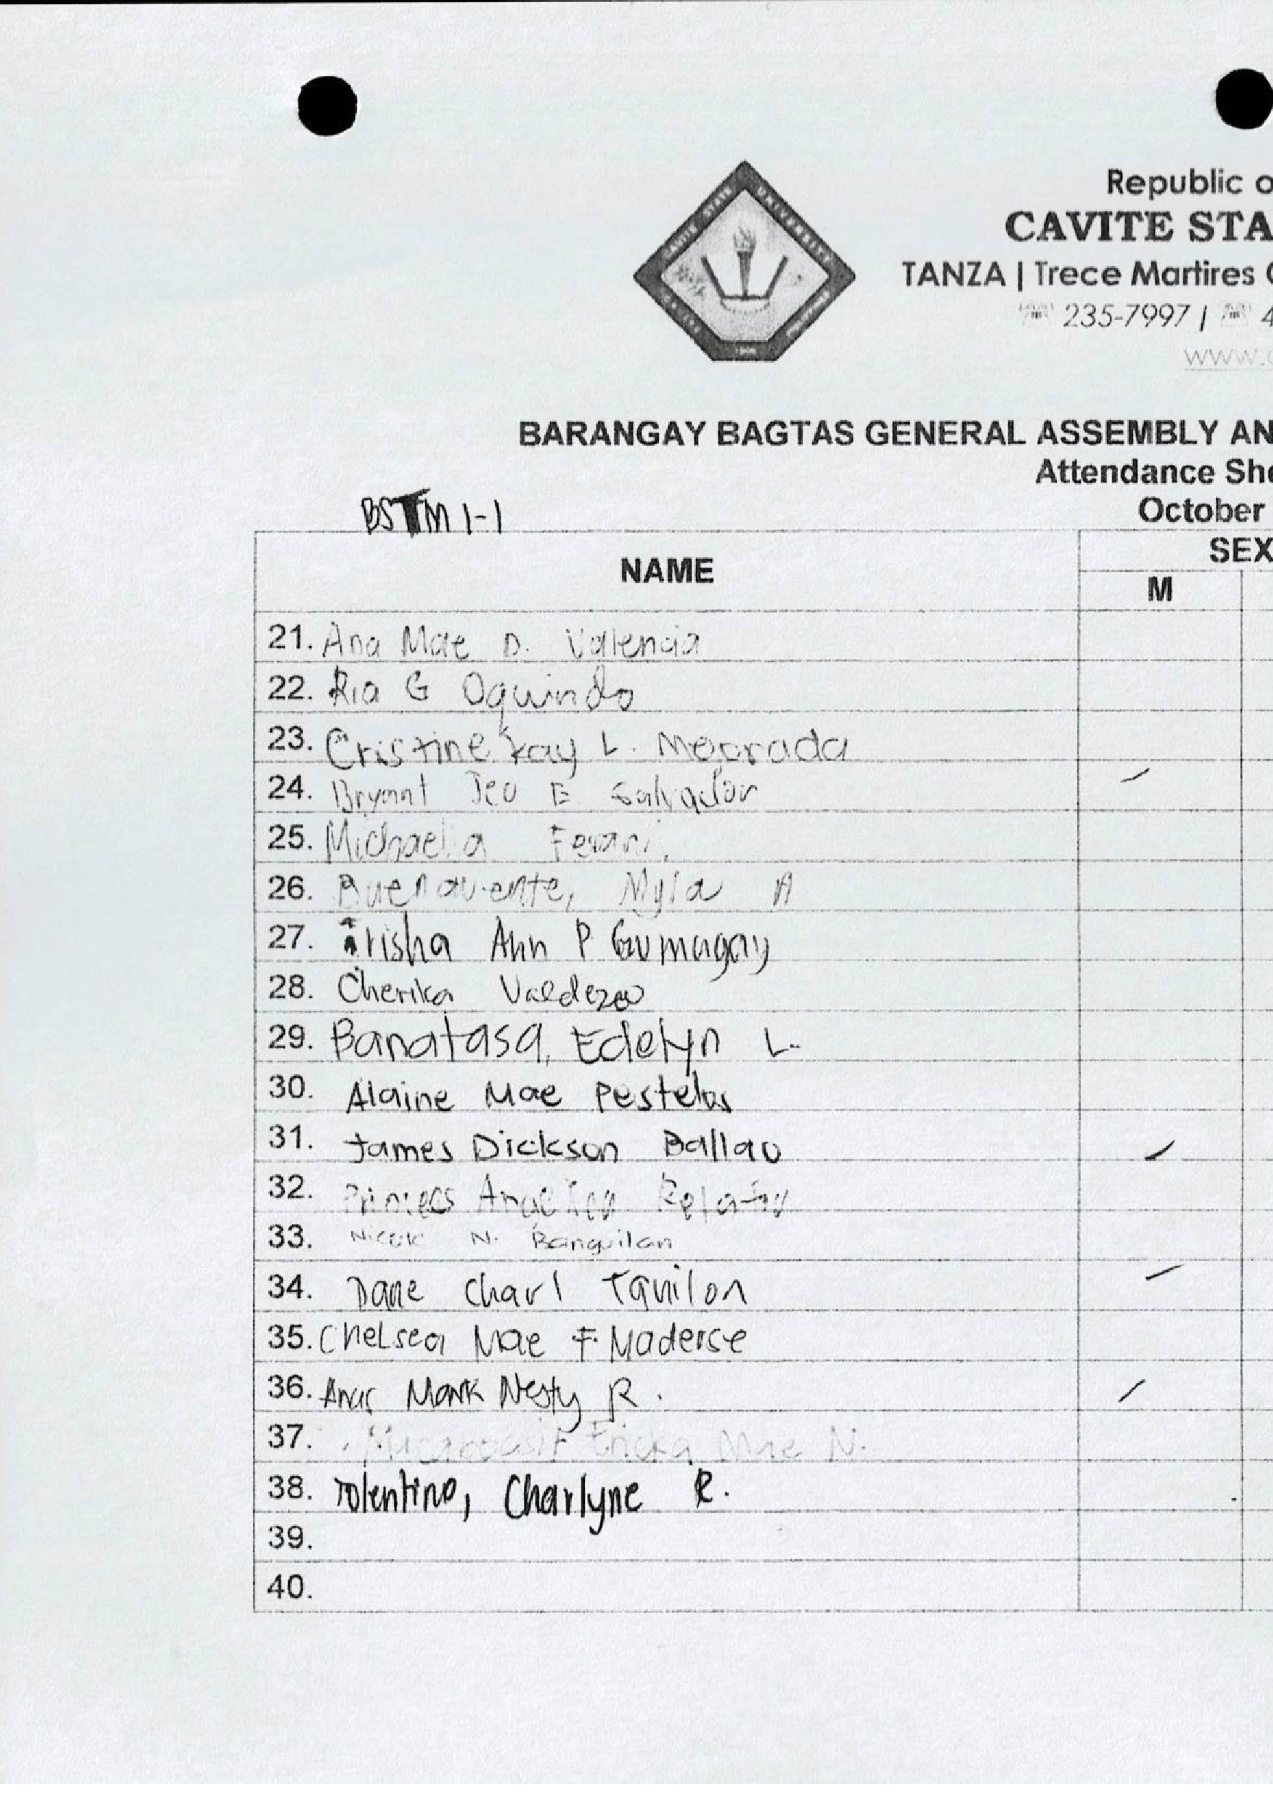 Republic o
CAVITE STA
TANZA | Trece Martires C
☏ 235-7997 / ☏ 4
www.
BARANGAY BAGTAS GENERAL ASSEMBLY AN
Attendance She
October
BSTM 1-1
NAME
SEX
M
21. Ana Mae D. Valencia
22. Ria G Oquindo
23. Cristine Kay L. Meorada
24. Bryant Jeo E Salvador
25. Michaella
26. Buenavente, Myla A
27. Trisha Ann P Gumagay
28. Cherika Valdezco
29. Banatasa, Edelyn L.
30. Alaine Mae Pestelos
31. James Dickson Ballao
32. Princess Angelica
33. Nicole N. Banguilan
34. Dane Charl Tquilon
35. Chelsea Mae F. Maderse
36. Mark Nesty R.
37. Ericka Mae N.
38. Tolentino, Charlyne R.
39.
40.